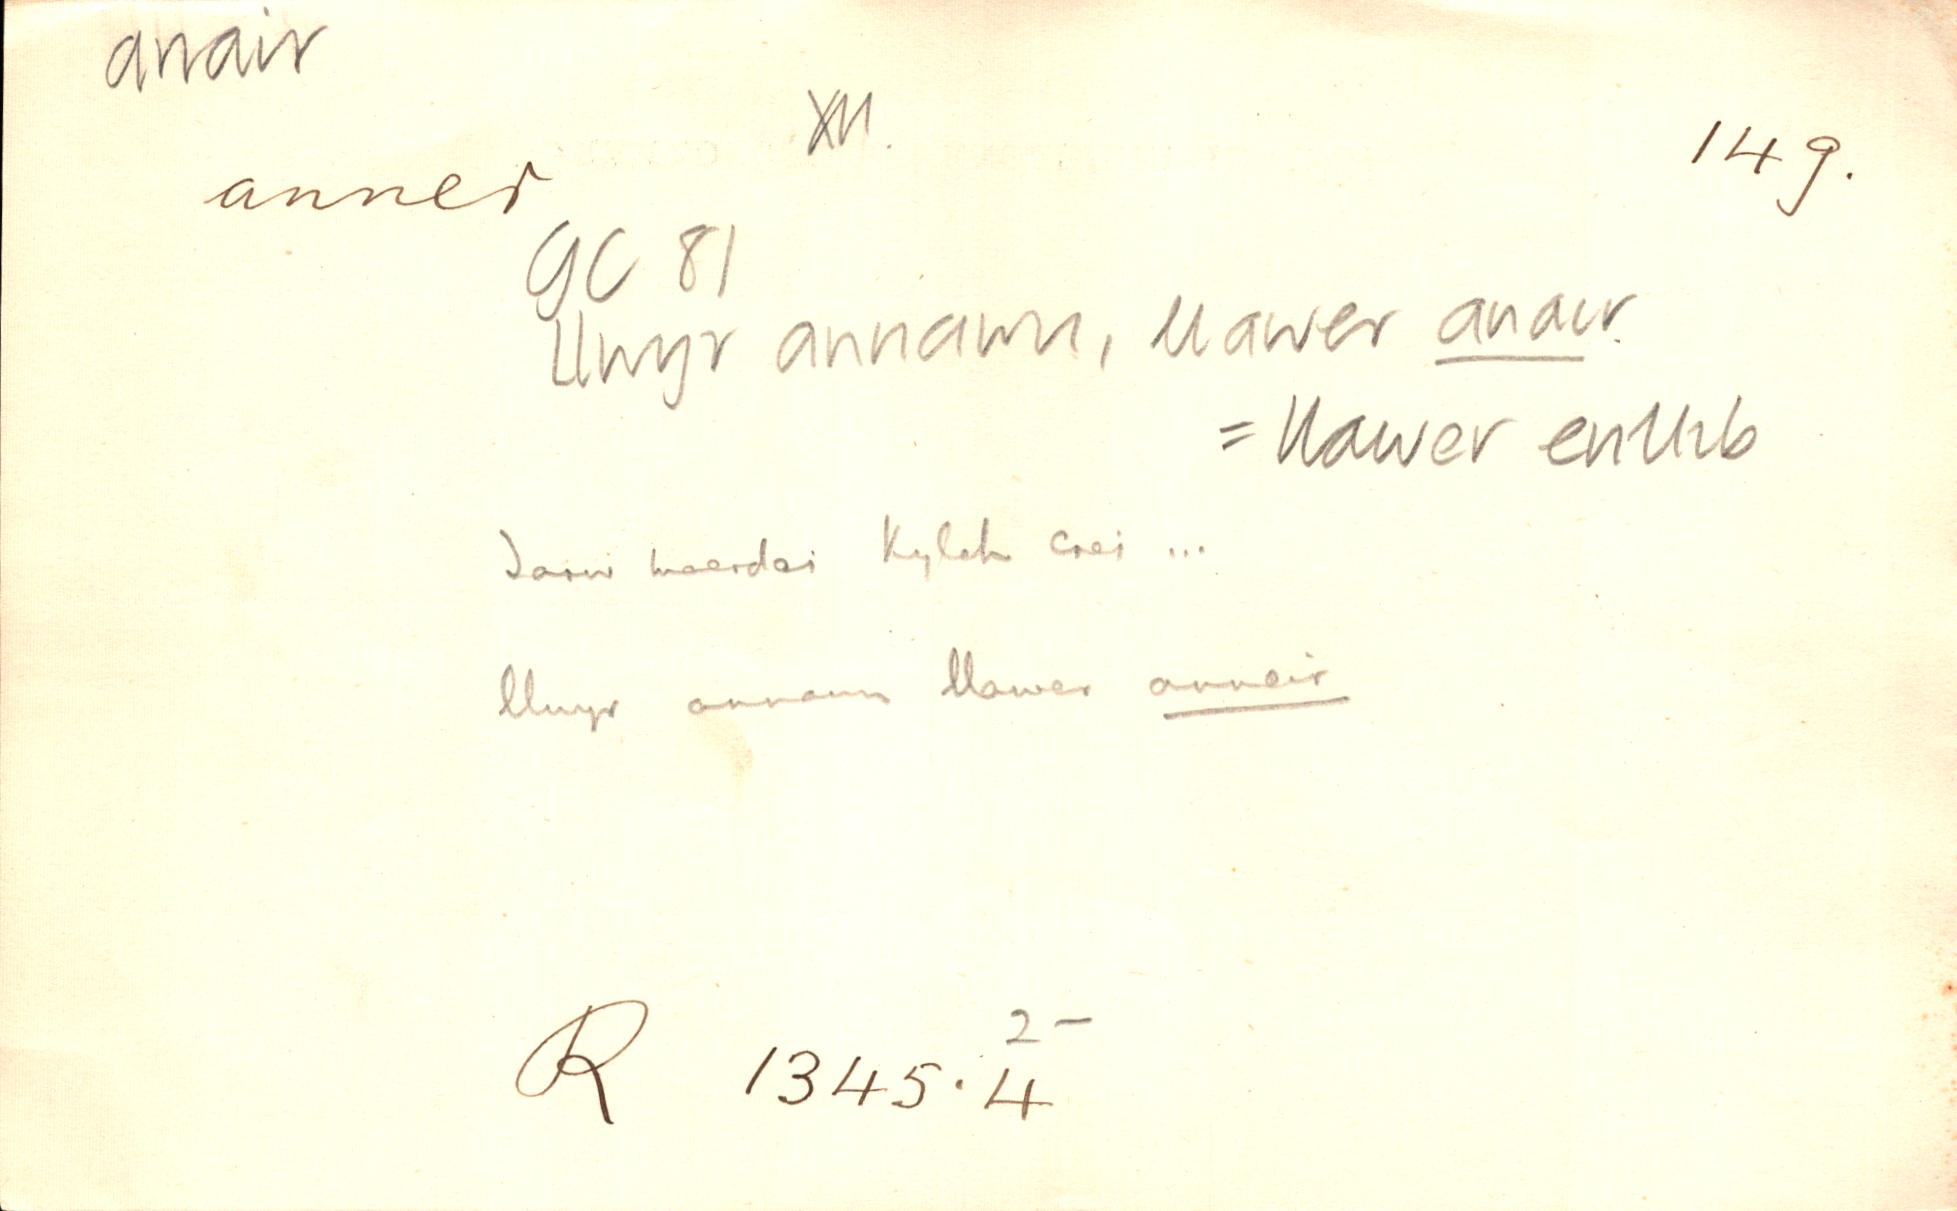 anair
XII.
149.
anner
GC 81
llwyr annawn, llawer anair.
= llawer enllib
maerdei kylch crei ...
llwyr annawn llawer anneir
2 -
R 1345.4